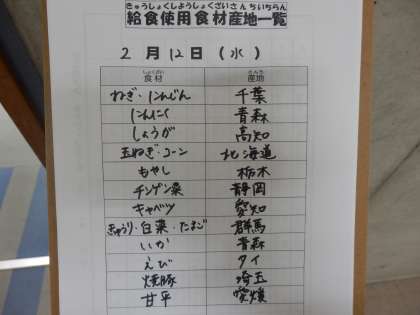 きゅうしょくしようしょくざいさんちいちらん
給食使用食材産地一覧
2月12日(水)
しょくざい さんち
食材 産地
ねぎ・にんじん 千葉
にんにく 青森
しょうが 高知
玉ねぎ・コーン 北海道
もやし 栃木
チンゲン菜 静岡
キャベツ 愛知
きゅうり・白菜・たまご 群馬
いか 青森
えび タイ
焼豚 埼玉
甘平 愛媛